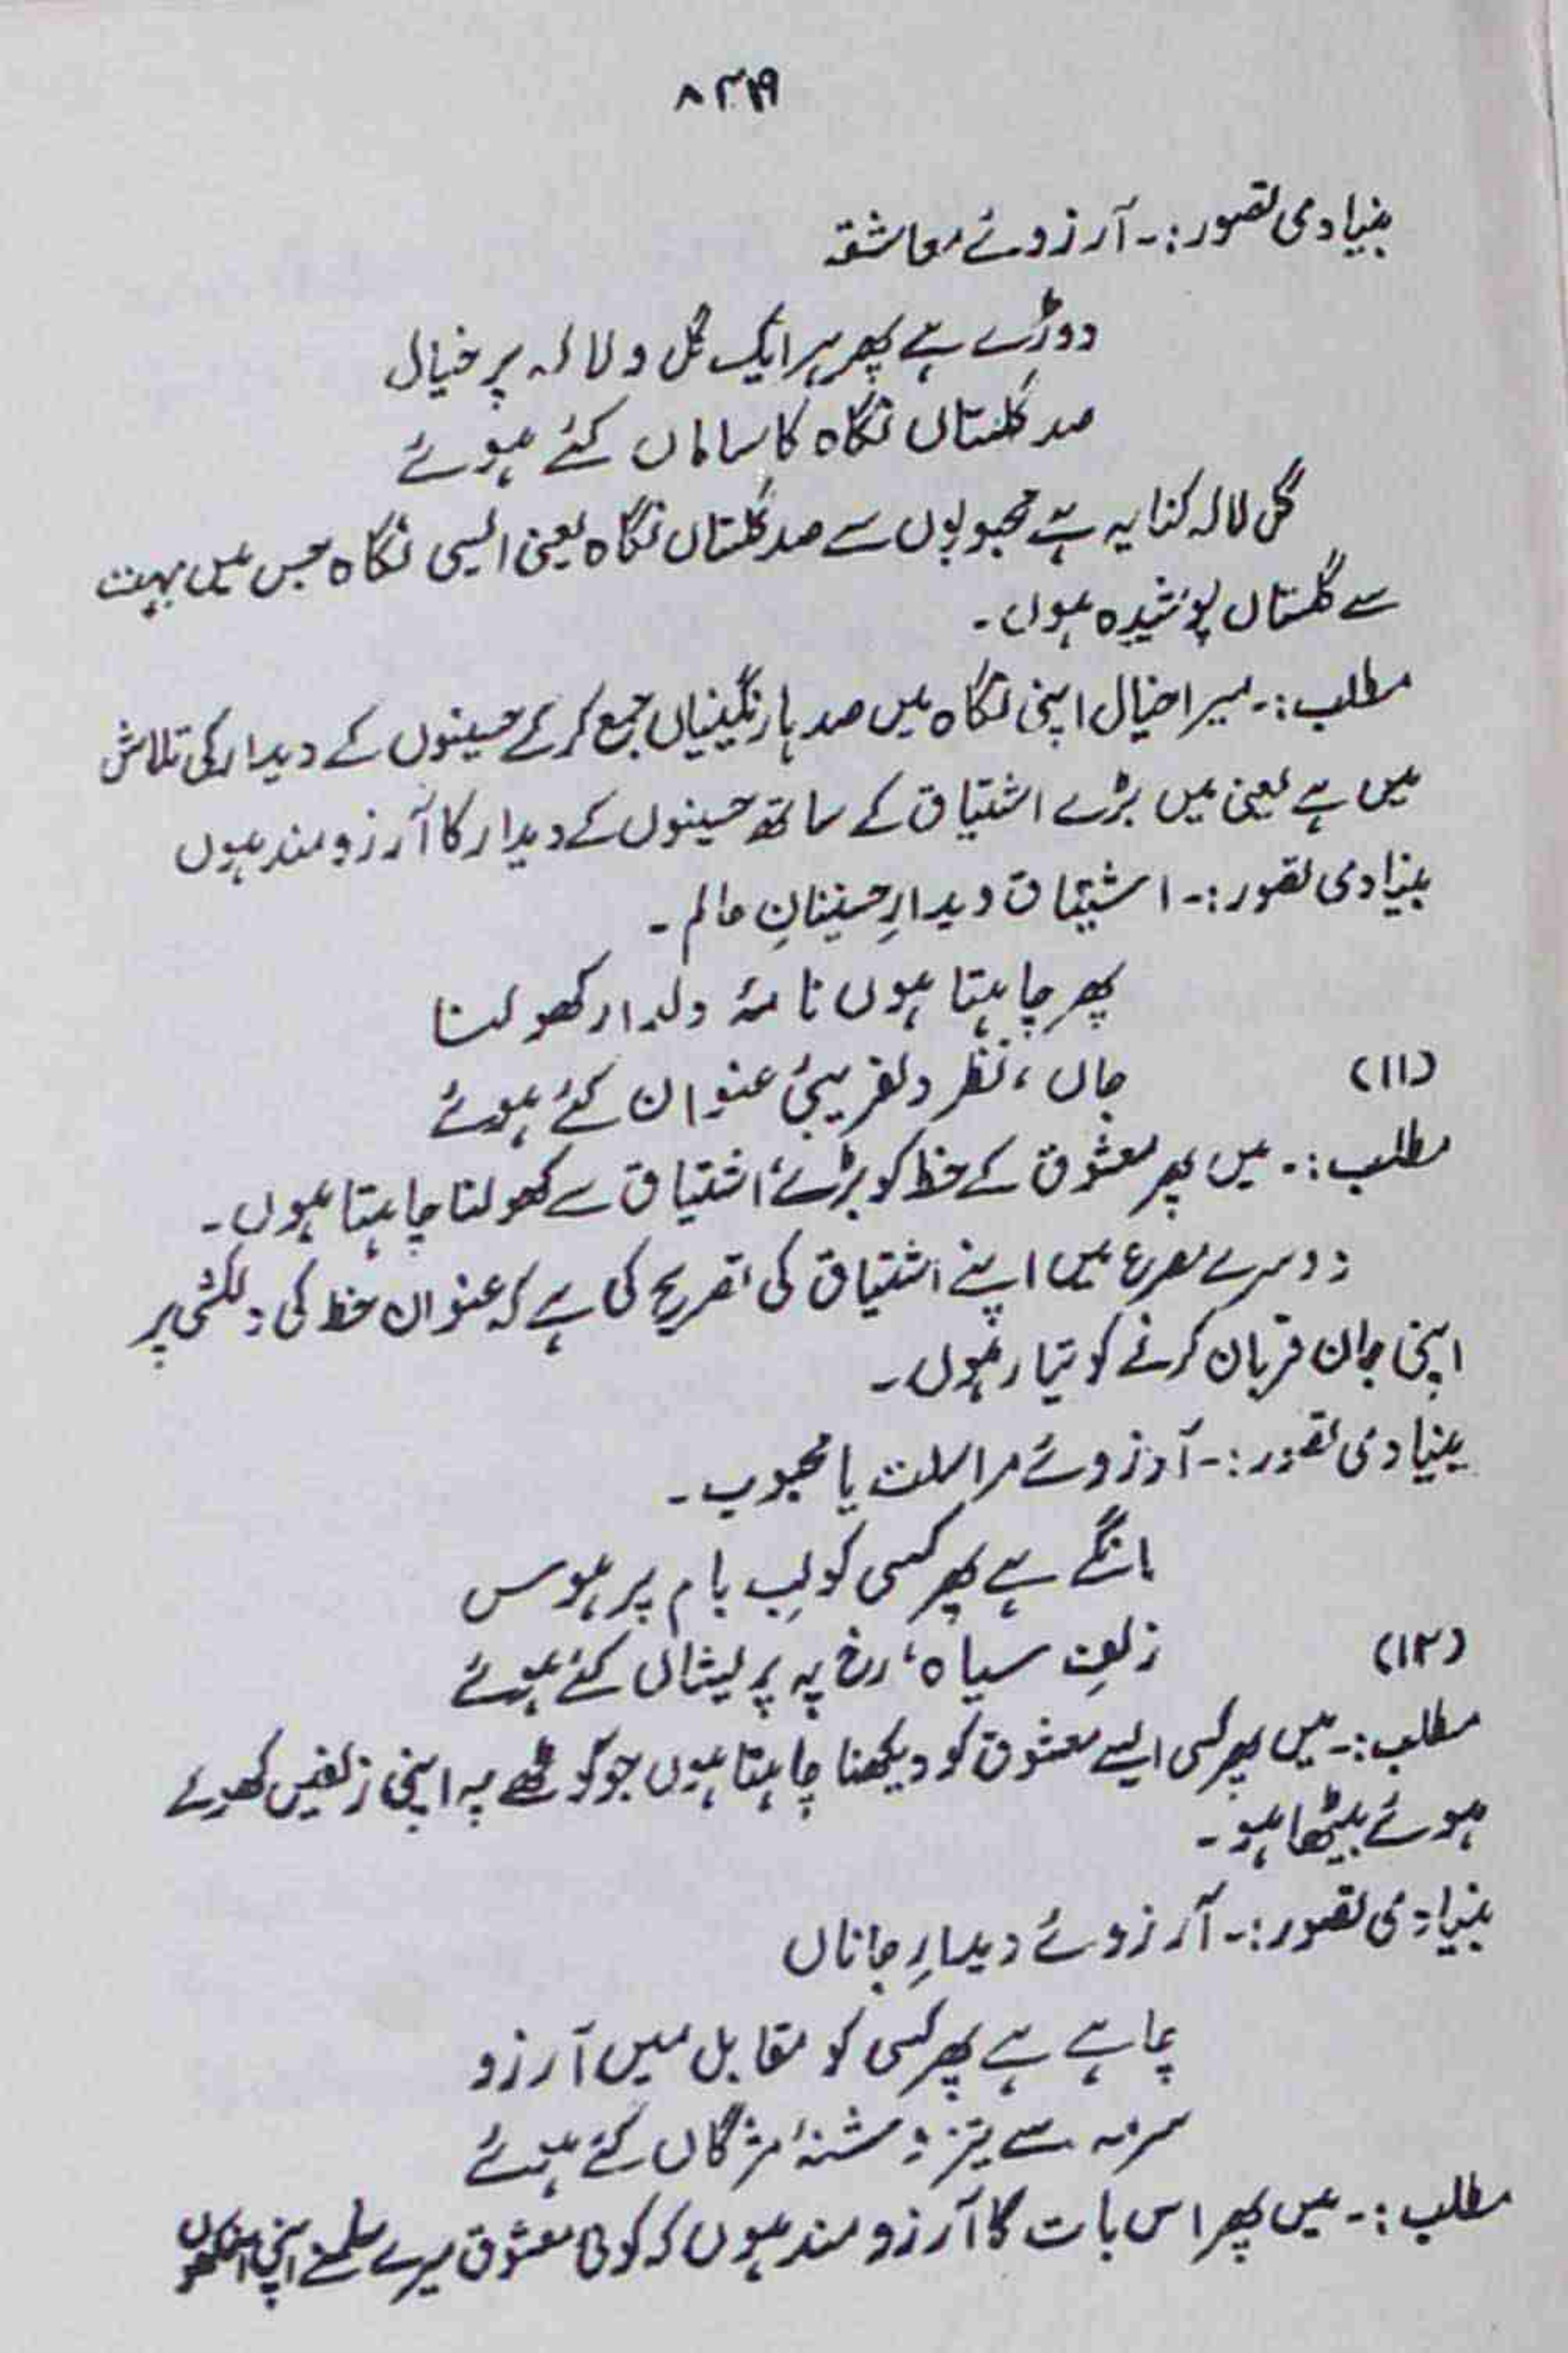 بنیادی تصور:۔ آرزوئے معاشقہ
دوڑے ہے پھر ہر ایک گل و لالہ پر خیال
صد گلستاں نگاہ کا ساماں کئے ہوئے
گل لالہ کنایہ ہے محبوبوں سے صد گلستاں نگاہ یعنی ایسی نگاہ جس میں بہت
سے گلستاں پوشیدہ ہوں۔
مطلب:۔ میرا خیال اپنی نگاہ میں صد ہا رنگینیاں جمع کر کے حسینوں کے دیدار کی تلاش
میں ہے یعنی میں بڑے اشتیاق کے ساتھ حسینوں کے دیدار کا آرزو مند ہوں
بنیادی تصور:۔ اشتیاق دیدارِ حسینانِ عالم۔
پھر چاہتا ہوں نامۂ دلدار کھولنا
(۱۱) جاں، نظر دلفریبیٔ عنوان کئے ہوئے
مطلب:۔ میں پھر معشوق کے خط کو بڑے اشتیاق سے کھولنا چاہتا ہوں۔
دوسرے مصرع میں اپنے اشتیاق کی تصریح کی ہے کہ عنوان خط کی دلکشی پر
اپنی جان قربان کرنے کو تیار ہوں۔
بنیادی تصور:۔ آرزوئے مراسلت یا محبوب۔
مانگے ہے پھر کسی کو لبِ بام پر ہوس
(۱۲) زلفِ سیاہ، رخ پہ پریشاں کئے ہوئے
مطلب:۔ میں پھر کسی ایسے معشوق کو دیکھنا چاہتا ہوں جو کوٹھے پہ اپنی زلفیں کھولے
ہوئے بیٹھا ہو۔
بنیادی تصور:۔ آرزوئے دیدارِ جاناں
چاہے ہے پھر کسی کو مقابل میں آرزو
سرمہ سے تیز دشنۂ مژگاں کئے ہوئے
مطلب:۔ میں پھر اس بات کا آرزو مند ہوں کہ کوئی معشوق میرے سامنے اپنی آنکھوں